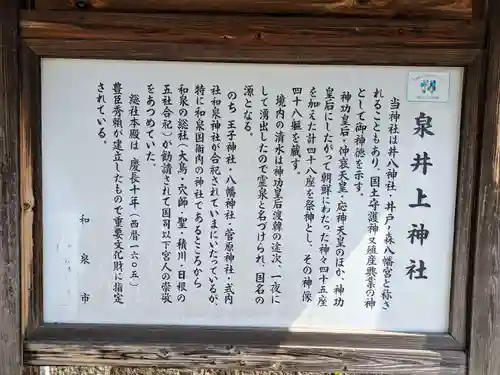 泉井上神社
当神社は井八神社・井戸ノ森八幡宮と称さ
れることもあり、国土守護神又殖産興業の神
として御神徳を示す。
神功皇后・仲哀天皇・応神天皇のほか、神功
皇后にしたがって朝鮮にわたった神々四十五座
を加えた計四十八座を祭神とし、その神像
四十八軀を蔵す。
境内の清水は神功皇后渡韓の途次、一夜に
して湧出したので霊泉と名づけられ、国名の
源となる。
のち 王子神社・八幡神社・菅原神社・式内
社和泉神社が合祀されていまにいたっているが、
特に和泉国衙内の神社であるところから
和泉の総社（大鳥・穴師・聖・積川・日根の
五社合祀）が勧請されて国司以下官人の崇敬
をあつめていた。
総社本殿は 慶長十年（西暦一六〇五）
豊臣秀頼が建立したもので重要文化財に指定
されている。
和泉市